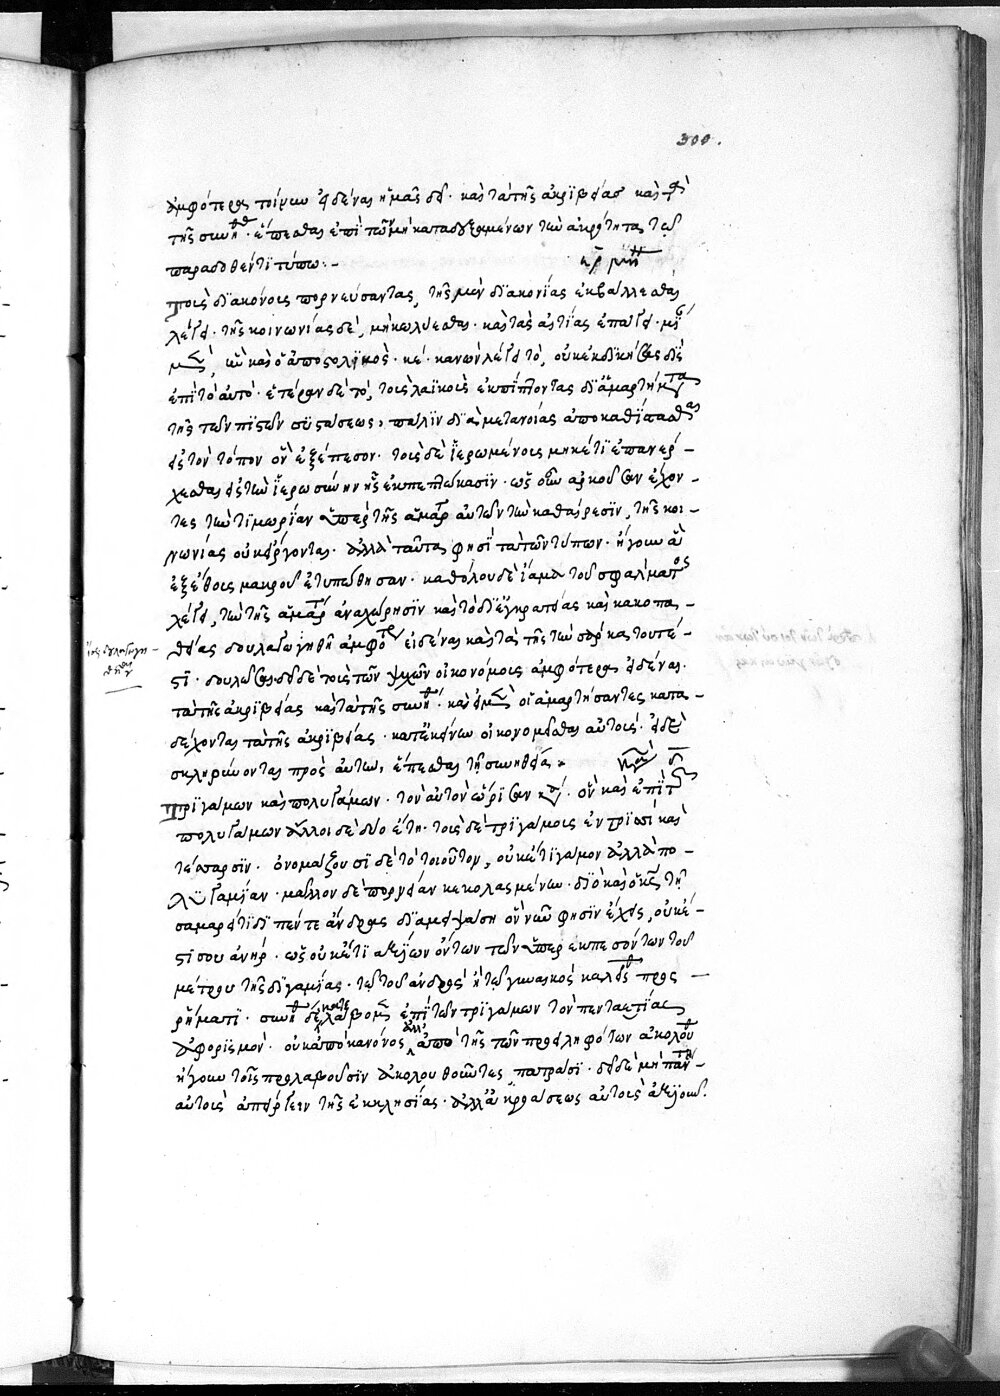 300.
ἀμφότερα τοίνυν εἰδέναι ἡμᾶς δεῖ· καὶ τὰ τῆς ἀκριβείας καὶ τὰ
τῆς συνηθείας· ἕπεσθαι ἐπὶ τῶν μὴ καταδεξαμένων τὴν ἀκρότητα τῷ
παραδοθέντι τύπῳ:-
ἑρμην
Τοὺς διακόνους πορνεύσαντας, τῆς μὲν διακονίας ἐκβάλλεσθαι
λέγει· τῆς κοινωνίας δὲ, μὴ κωλύεσθαι· καὶ τὰς αἰτίας ἐπάγει· μίαν
μὲν, ἣν καὶ ὁ ἀποστολικὸς κε κανὼν λέγει τὸ, οὐκ ἐκδικήσεις δὶς
ἐπὶ τὸ αὐτό· ἑτέραν δὲ τὸ, τοὺς λαϊκοὺς ἐκπίπτοντας δι' ἁμαρτήματα
τῆς τῶν πιστῶν συστάσεως, πάλιν διὰ μετανοίας ἀποκαθίστασθαι
εἰς τὸν τόπον οὗ ἐξέπεσον· τοὺς δὲ ἱερωμένους μηκέτι ἐπανέρ-
χεσθαι εἰς τὴν ἱερωσύνην ἧς ἐκπεπτώκασιν· ὡς οὖν ἀρκοῦσαν ἔχον-
τες τιμωρίαν ὑπὲρ τῆς ἁμαρτίας αὐτῶν τὴν καθαίρεσιν, τῆς κοι-
νωνίας οὐκ εἴργονται· ἀλλὰ ταῦτα φησὶ τὰ τῶν τύπων· ἤγουν ἃ
ἐξ ἔθους μακροῦ ἐτυπώθησαν· καθόλου δὲ ἴαμα τοῦ σφάλματος
λέγει, τὴν τῆς ἁμαρτίας ἀναχώρησιν καὶ τὸ δι' ἐγκρατείας καὶ κακοπα-
θείας δουλαγωγηθῆναι ἀμφότερα εἰδέναι καὶ τὰ τῆς τὴν σάρκα τουτέ-
στι· δουλεῦσαι δεῖ δὲ τοὺς τῶν ψυχῶν οἰκονόμους ἀμφότερα εἰδέναι·
τὰ τῆς ἀκριβείας καὶ τὰ τῆς συνηθείας· καὶ εἰ μὲν οἱ ἁμαρτήσαντες κατα-
δέχονται τὰ τῆς ἀκριβείας· κατ' ἐκείνην οἰκονομεῖσθαι αὐτούς· εἰ δὲ
σκληρύνονται πρὸς αὐτὴν, ἕπεσθαι τῇ συνηθείᾳ·
Τριγάμων καὶ πολυγάμων· τὸν αὐτὸν ὥρισαν κανόνα· ὃν καὶ ἐπὶ τῶν
πολυγάμων ἄλλοι δὲ δύο ἔτη· τοὺς δὲ τριγάμους ἐν τρισὶ καὶ
τέσαρσιν· ὀνομάζουσι δὲ τὸ τοιοῦτον, οὐκέτι γάμον ἀλλὰ πο-
λυγαμίαν· μᾶλλον δὲ πορνείαν κεκολασμένην· διὸ καὶ ὁ κύριος τῇ
σαμαρείτιδι πέντε ἄνδρας διαμειψάσῃ ὃν νῦν φησὶν ἔχεις, οὐκέ-
στι σου ἀνήρ· ὡς οὐκέτι ἀξίων ὄντων τῶν ὑπερεκπεσόντων τοῦ
μέτρου τῆς διγαμίας· τῷ τοῦ ἀνδρὸς ἢ τῷ γυναικὸς καλεῖσθαι προς-
ρήματι· συνήθειαν δὲ κατελάβομεν ἐπὶ τῶν τριγάμων τὸν πενταετίας
ἀφορισμὸν· οὐκ ἀπὸ κανόνος ἀλλ' ἀπὸ τῆς τῶν προειληφότων ἀκολουθίας
ἤγουν τοῖς προλαβοῦσιν ἀκολουθοῦντες πατράσι· δεῖ δὲ μὴ πάντη
αὐτοὺς ἀπείργειν τῆς ἐκκλησίας· ἀλλ' ἀκροάσεως αὐτοὺς ἀξιοῦν.